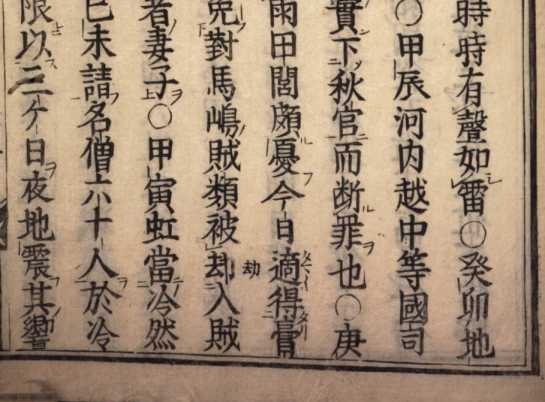 時時有聲如雷〇癸卯地
〇甲辰河内越中等國司
實下秋官而断罪也〇庚
雨田閭頗憂今日適得膏
免對馬嶋賊類被刧入賊
者妻子〇甲寅虹當冷然
巳未請名僧六十人於冷
限以三ケ日夜地震其響